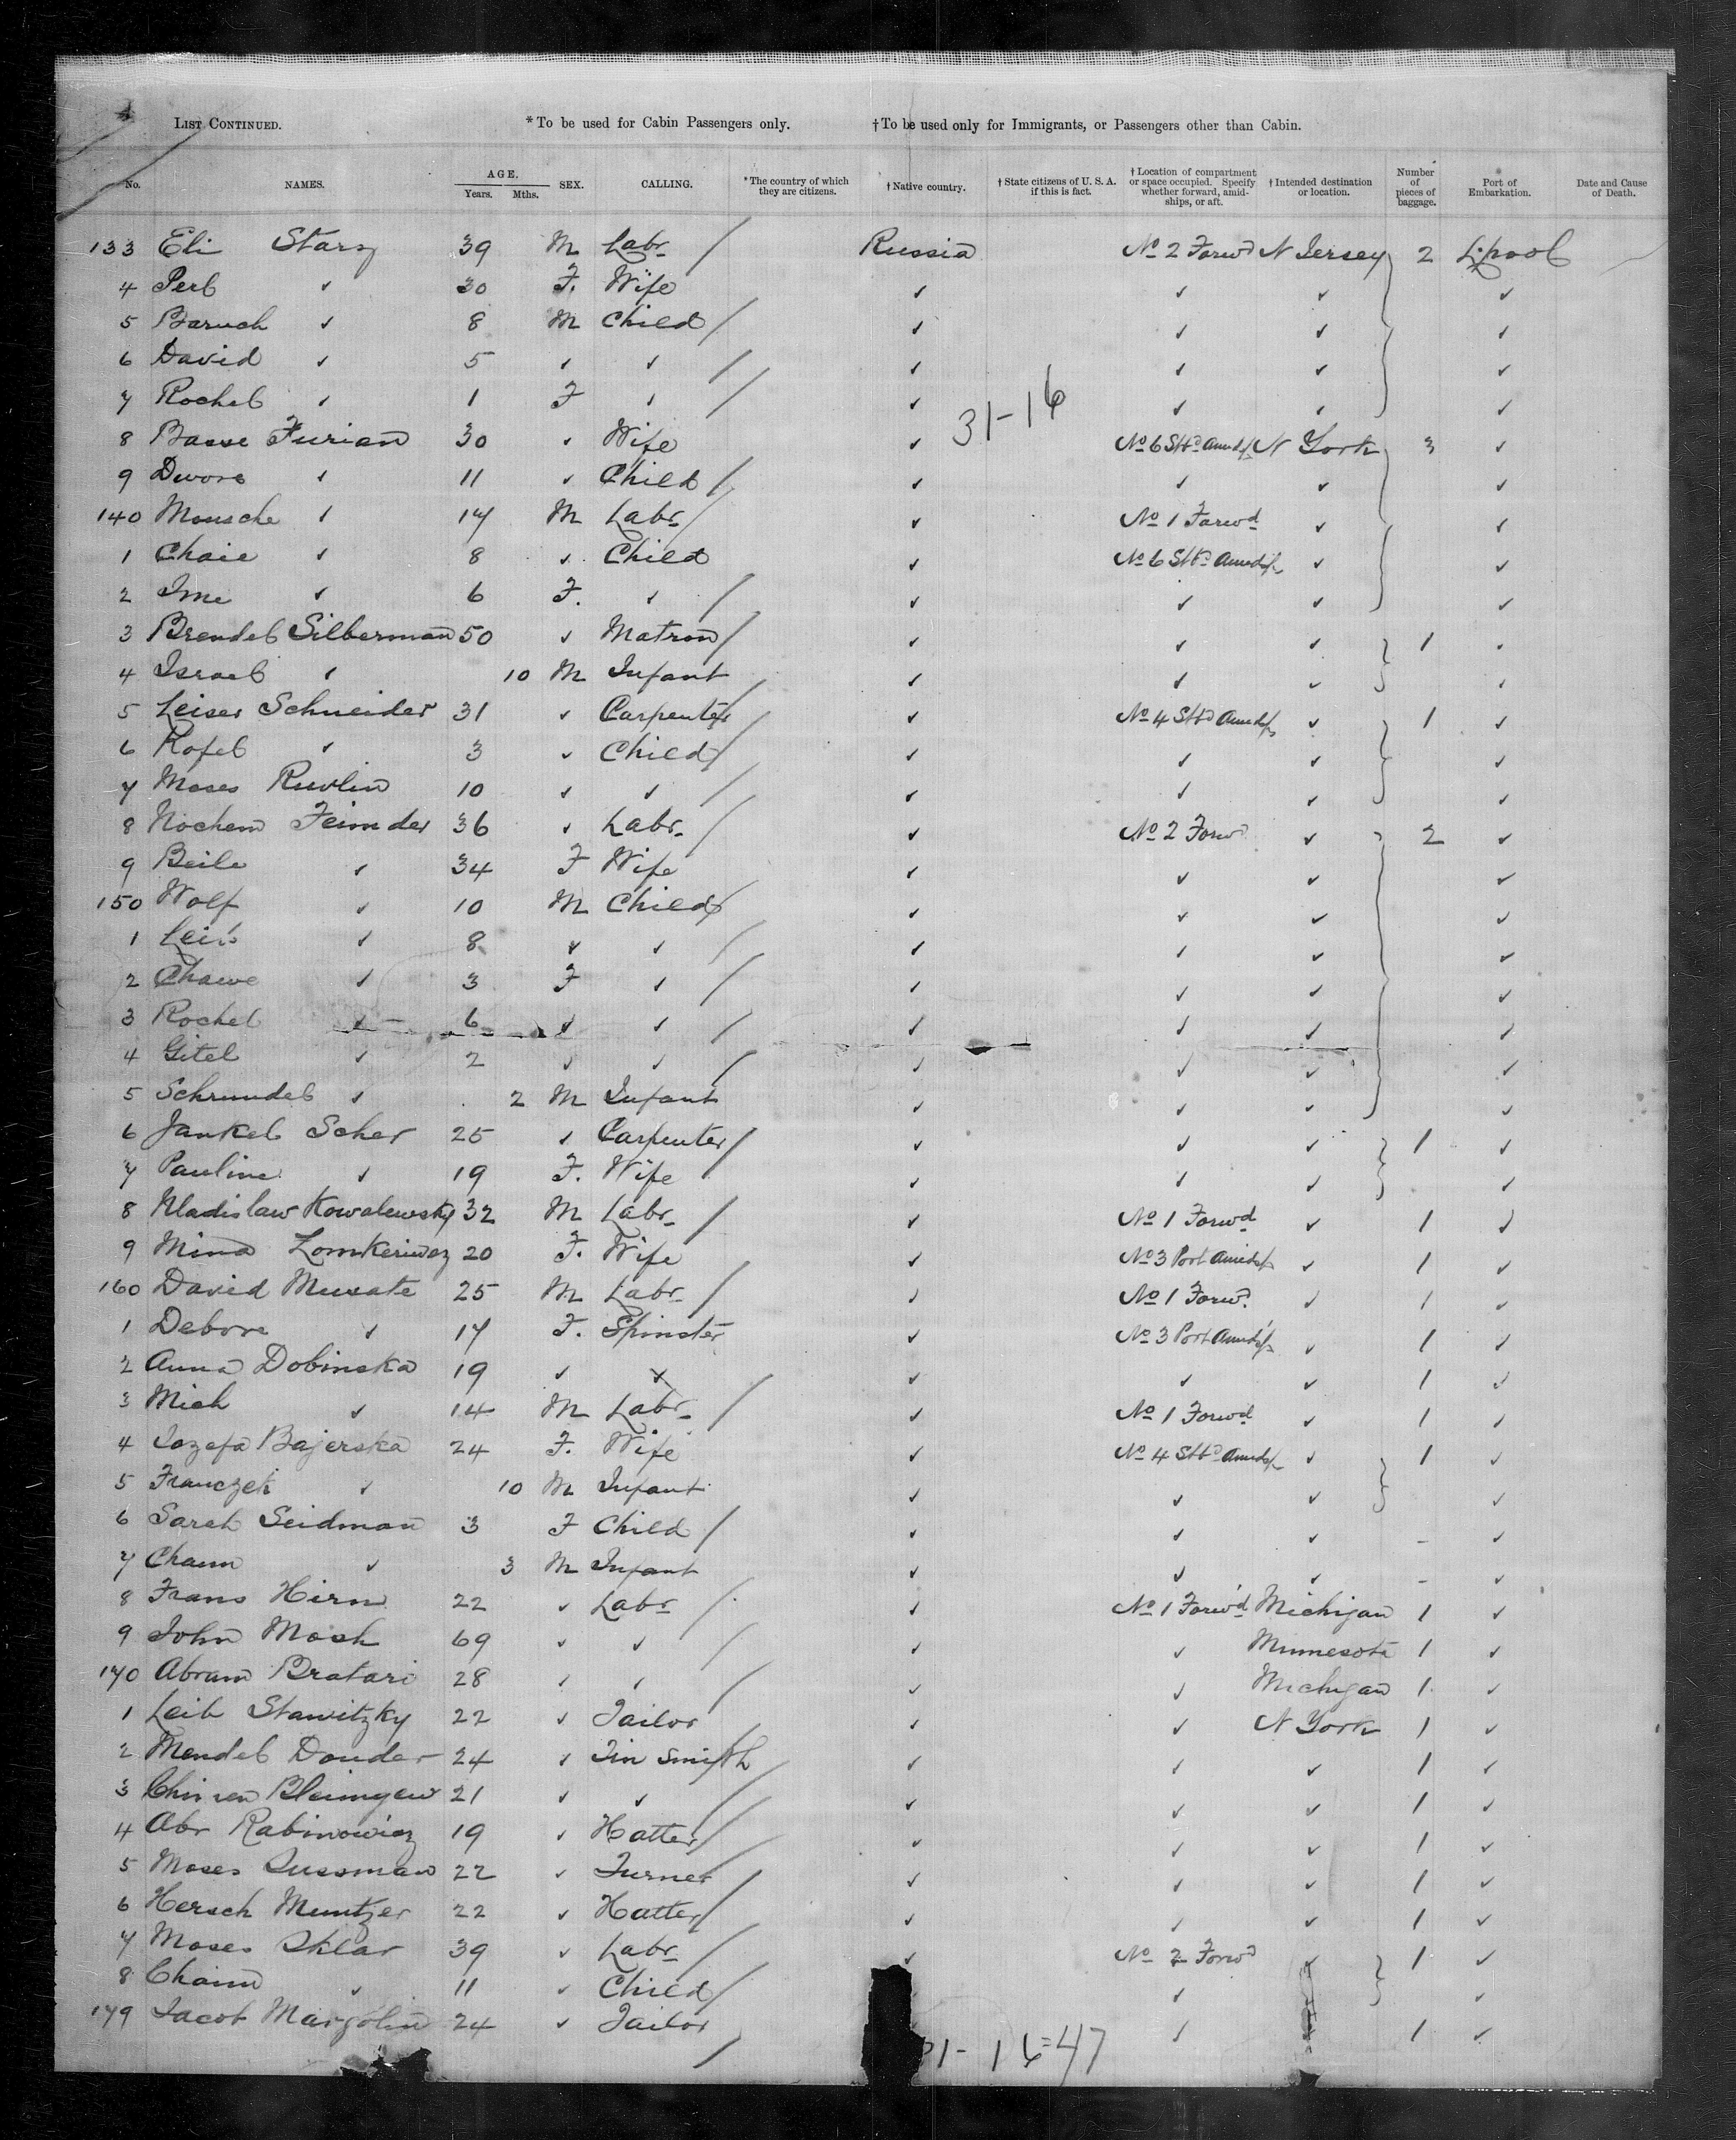 4
LIST CONTINUED. *To be used for Cabin Passengers only. †To be used only for Immigrants, or Passengers other than Cabin.
No. NAMES. AGE. Years. Mths. SEX. CALLING. *The country of which they are citizens. †Native country. †State citizens of U. S. A. if this is fact. †Location of compartment or space occupied. Specify whether forward, amidships, or aft. †Intended destination or location. Number of pieces of baggage. Port of Embarkation. Date and Cause of Death.
133 Eli Starz 39 M Labr. / Russia No 2 Forwd N Jersey 2 L'pool
4 Perl ✓ 30 F. Wife ✓ ✓ ✓ ✓
5 Baruch ✓ 8 M Child / ✓ ✓ ✓ ✓
6 David ✓ 5 ✓ ✓ / ✓ ✓ ✓ ✓
7 Rochel ✓ 1 F ✓ / ✓ ✓ ✓ ✓
31-16
8 Basse Furian 30 ✓ Wife ✓ No 6 Stbd Amids N York 3 ✓
9 Dwore ✓ 11 ✓ Child / ✓ ✓ ✓ ✓
140 Mousche ✓ 17 M Labr / ✓ No 1 Forwd ✓ ✓
1 Chaie ✓ 8 ✓ Child ✓ No 6 Stbd Amids ✓ ✓
2 Ime ✓ 6 F. ✓ / ✓ ✓ ✓ ✓
3 Brendel Silberman 50 ✓ Matron / ✓ ✓ ✓ 1 ✓
4 Israel ✓ 10 M Infant ✓ ✓ ✓ ✓
5 Leiser Schneider 31 ✓ Carpenter / ✓ No 4 Stbd Amids ✓ 1 ✓
6 Rofel ✓ 3 ✓ Child / ✓ ✓ ✓ ✓
7 Moses Ruvlin 10 ✓ ✓ / ✓ ✓ ✓ ✓
8 Nochem Feimder 36 ✓ Labr. / ✓ No 2 Forwd ✓ 2 ✓
9 Beile ✓ 34 F Wife ✓ ✓ ✓ ✓
150 Wolf ✓ 10 M Child / ✓ ✓ ✓ ✓
1 Leib ✓ 8 ✓ ✓ / ✓ ✓ ✓ ✓
2 Chawe ✓ 3 F ✓ / ✓ ✓ ✓ ✓
3 Rochel ✓ 6 ✓ ✓ / ✓ ✓ ✓ ✓
4 Gitel ✓ 2 ✓ ✓ / ✓ ✓ ✓ ✓
5 Schrundel ✓ 2 M Infant ✓ ✓ ✓ ✓
6 Jankel Scher 25 ✓ Carpenter / ✓ ✓ ✓ 1 ✓
7 Pauline ✓ 19 F. Wife ✓ ✓ ✓ ✓
8 Wladislaw Kowalewsky 32 M Labr. / ✓ No 1 Forwd ✓ 1 ✓
9 Mina Lomkeriwez 20 F. Wife ✓ No 3 Port Amids ✓ 1 ✓
160 David Musate 25 M Labr. / ✓ No 1 Forwd ✓ 1 ✓
1 Debore ✓ 17 F. Spinster ✓ No 3 Port Amids ✓ 1 ✓
2 Anna Dobinska 19 ✓ ✓ ✓ ✓ ✓ 1 ✓
3 Mich ✓ 14 M Labr. / ✓ No 1 Forwd ✓ 1 ✓
4 Jozefa Bajerska 24 F. Wife ✓ No 4 Stbd Amids ✓ 1 ✓
5 Franczek ✓ 10 M Infant ✓ ✓ ✓ ✓
6 Sareh Seidman 3 F Child / ✓ ✓ ✓ - ✓
7 Chaim ✓ 3 M Infant ✓ ✓ ✓ - ✓
8 Frans Hirn 22 ✓ Labr / ✓ No 1 Forwd Michigan 1 ✓
9 John Mosk 69 ✓ ✓ / ✓ ✓ Minnesota 1 ✓
170 Abram Bratari 28 ✓ ✓ / ✓ ✓ Michigan 1 ✓
1 Leib Stawitzky 22 ✓ Tailor / ✓ ✓ N York 1 ✓
2 Mendel Douder 24 ✓ Tin Smith / ✓ ✓ ✓ 1 ✓
3 21 ✓ ✓ / ✓ ✓ ✓ 1 ✓
4 Abr Rabinowicz 19 ✓ Hatter / ✓ ✓ ✓ 1 ✓
5 Moses Sussman 22 ✓ Turner / ✓ ✓ ✓ 1 ✓
6 Hersch Muntzer 22 ✓ Hatter / ✓ ✓ ✓ 1 ✓
7 Moses Sklar 39 ✓ Labr / ✓ No 2 Forwd ✓ 1 ✓
8 Chaim ✓ 11 ✓ Child / ✓ ✓ ✓
179 Jacob Margolin 24 ✓ Tailor / ✓ ✓ 1 ✓
31-16=47